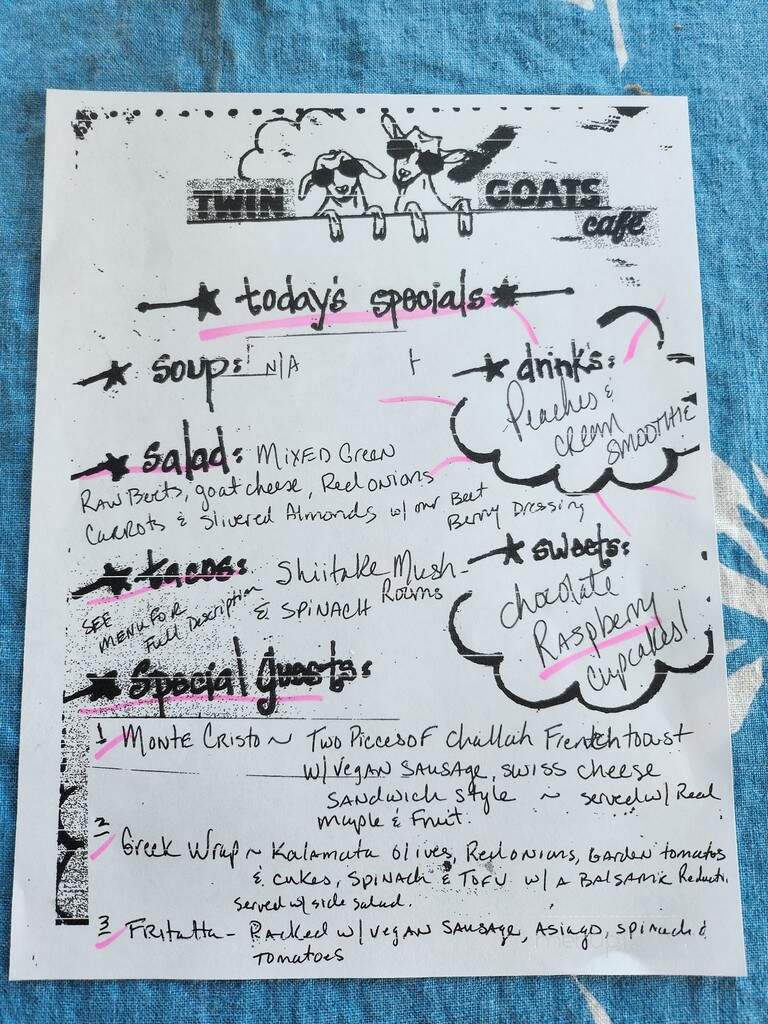 TWIN GOATS
café
today's specials
soup: N/A
drinks:
Peaches &
CREAM
SMOOTHIE
salad: MIXED GREEN
RAW Beets, goat cheese, Red onions
CARROTS & Slivered Almonds w/ our Beet
Berry Dressing
tacos: Shiitake Mush-
Rooms
& SPINACH
SEE
MENU FOR
Full Description
sweets:
chocolate
Raspberry
Cupcakes!
Special guests:
1 MONTE CRISTO ~ TWO Pieces of challah French toast
w/ Vegan SAUSAGE, SWISS cheese
SANDWICH style ~ served w/ Real
maple & Fruit.
2 Greek Wrap ~ Kalamata olives, Red onions, GARDEN tomatoes
& cukes, SPINACH & TOFU w/ A BALSAMIC Reducti.
served w/ side salad.
3 FRitatta - Packed w/ vegan SAUSAGE, ASiago, spinach &
TOMATOES